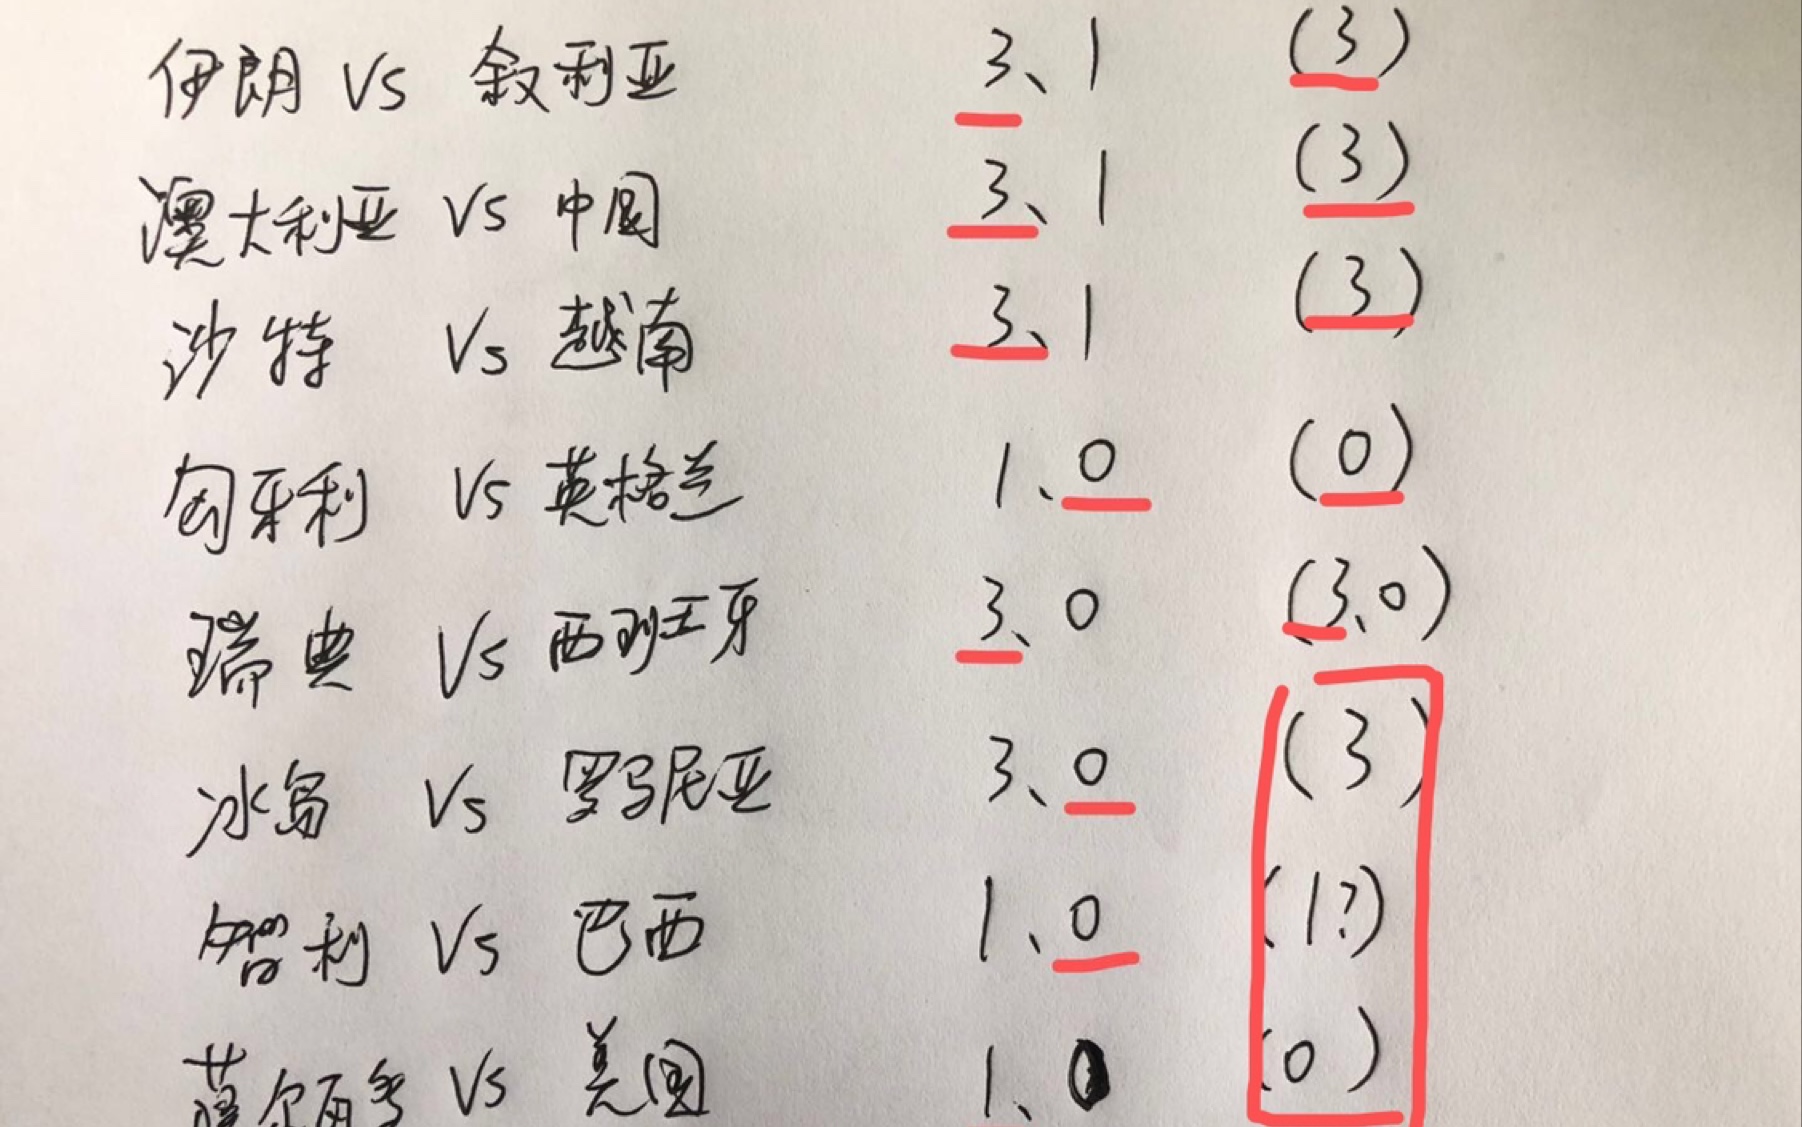 伊朗 VS 叙利亚 3、1 (3)
澳大利亚 VS 中国 3、1 (3)
沙特 VS 越南 3、1 (3)
匈牙利 VS 英格兰 1、0 (0)
瑞典 VS 西班牙 3、0 (3、0)
冰岛 VS 罗马尼亚 3、0 (3)
智利 VS 巴西 1、0 (1?)
萨尔瓦多 VS 美国 1、0 (0)